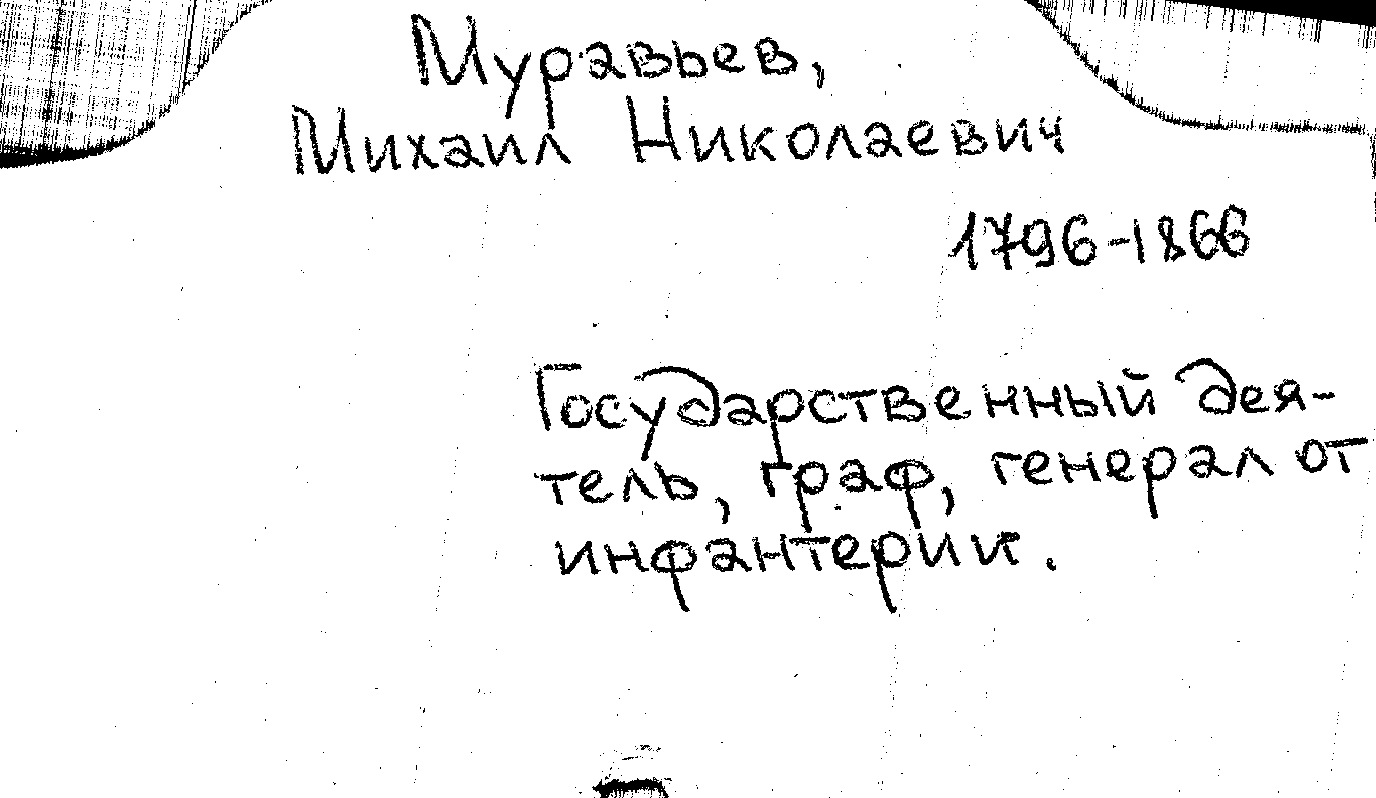 Муравьев,
Михаил Николаевич
1796-1866
Государственный дея-
тель, граф, генерал от
инфантерии.